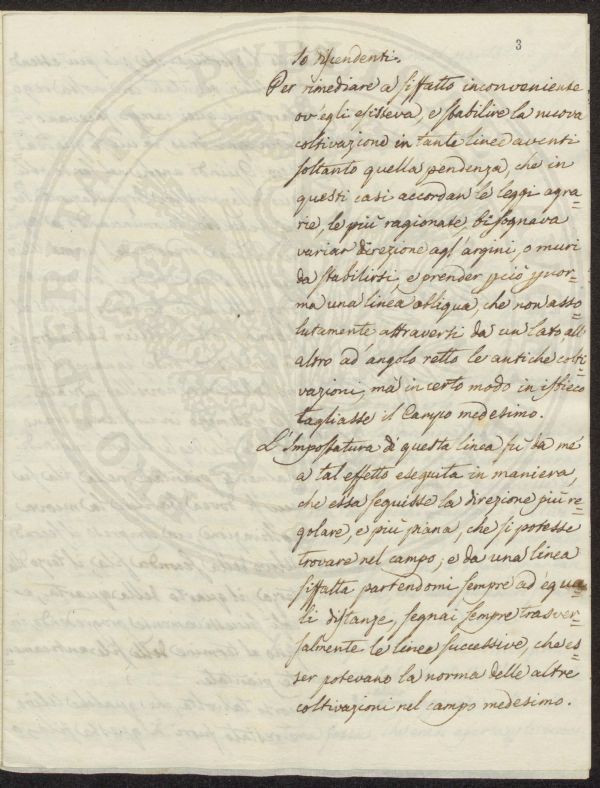 3
to spendenti.
Per rimediare a siffatto inconveniente
ov'egli esisseva, e stabilire la nuova
coltivazione in tante linee aventi
soltanto quella pendenza, che in
questi casi accordan le leggi agra=
rie le più ragionate, bisognava
variar direzione agl'argini, o muri
da stabilirsi, e prender pciò p nor=
ma una linea obliqua, che non asso=
lutamente attraversi da un lato, all'
altro ad angolo retto le antiche colti=
vazioni, mà in certo modo in isbieco
tagliasse il Campo medesimo.
L'Impostatura di questa linea fù da mé
a tal effetto eseguita in maniera,
che essa seguisse la direzione più re=
golare, e più piana, che si potesse
trovare nel campo; e da una linea
siffatta partendomi sempre ad egua=
li distanze, segnai sempre trasver=
salmente le linee successive, che es=
ser potevano la norma delle altre
coltivazioni nel campo medesimo.